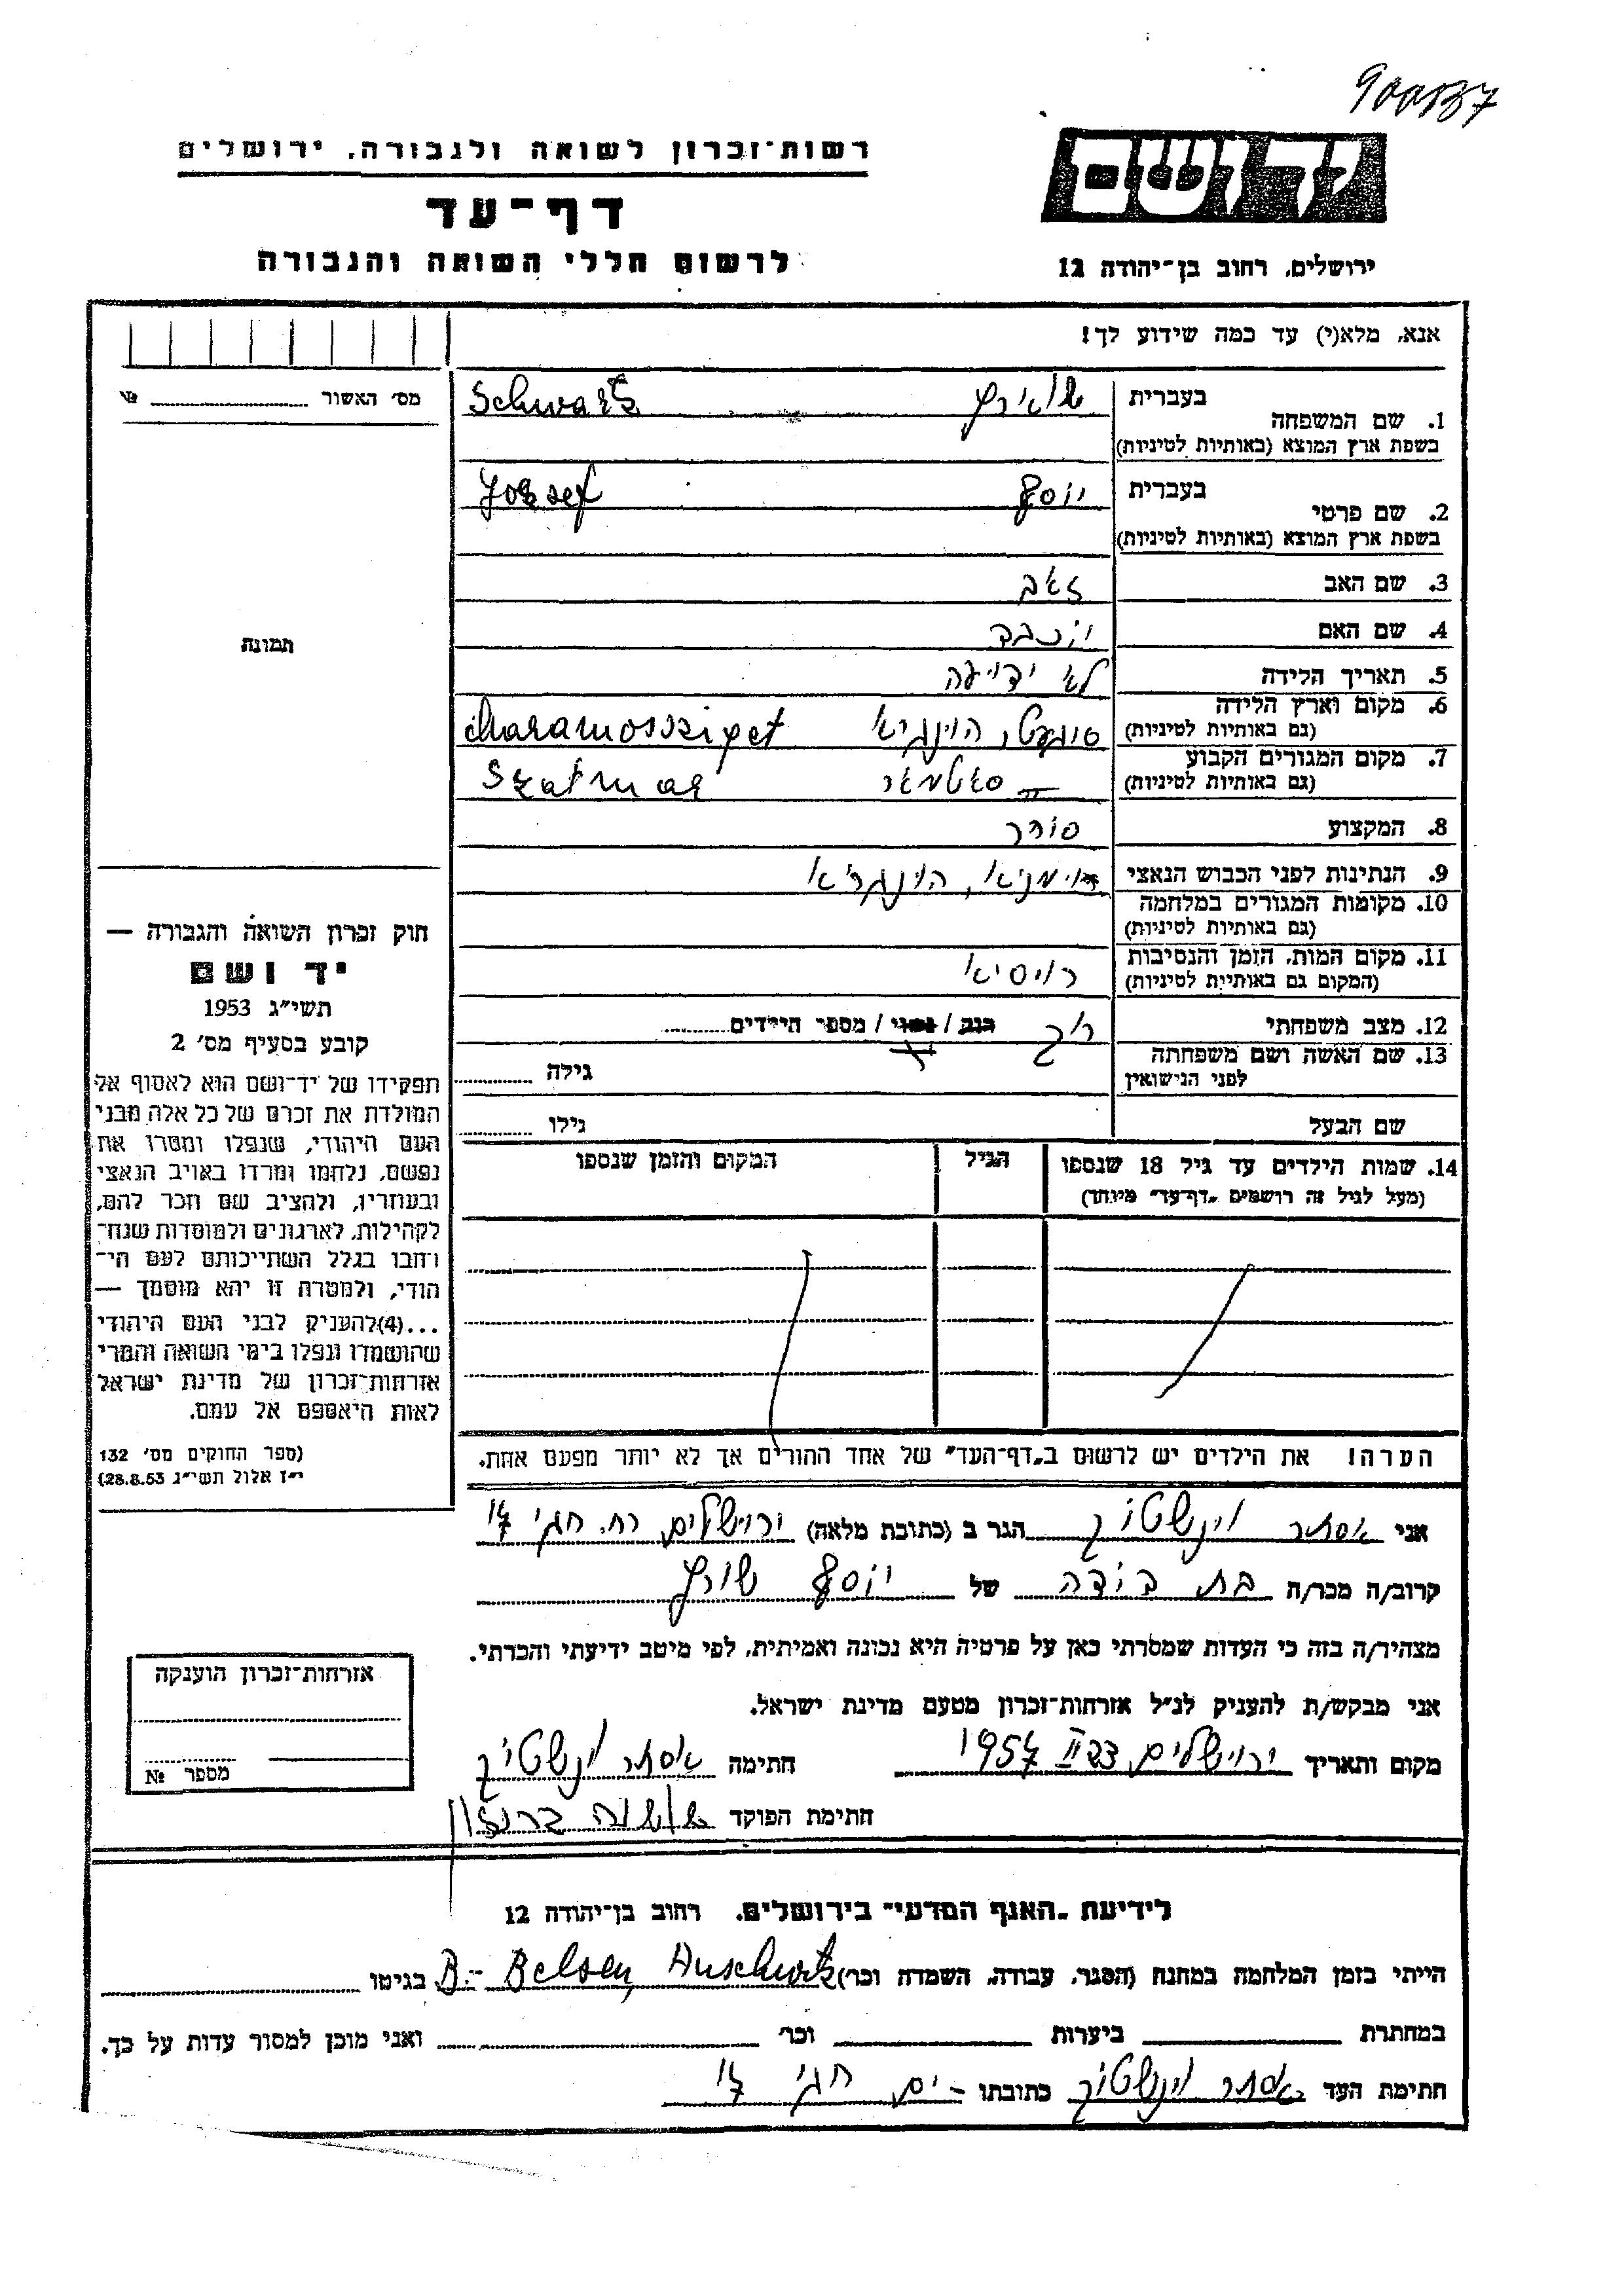 900837
רשות־זכרון לשואה ולגבורה, ירושלים
דף־עד
לרשום חללי השואה והגבורה
יד ושם
ירושלים, רחוב בן־יהודה 12
אנא, מלא(י) עד כמה שידוע לך!
מס׳ האשור № ........
1. שם המשפחה בעברית
שווארץ Schwartz
בשפת ארץ המוצא (באותיות לטיניות)
2. שם פרטי בעברית
יוסף Jozsef
בשפת ארץ המוצא (באותיות לטיניות)
3. שם האב זאב
4. שם האם יוכבד
5. תאריך הלידה לא ידועה
6. מקום וארץ הלידה
(גם באותיות לטיניות)
סיגעט, הונגריא Maramossziget
7. מקום המגורים הקבוע
(גם באותיות לטיניות)
סאטמאר Szatmar
8. המקצוע סוחר
9. הנתינות לפני הכבוש הנאצי רומניא, הונגריא
10. מקומות המגורים במלחמה
(גם באותיות לטיניות)
11. מקום המות, הזמן והנסיבות
(המקום גם באותיות לטיניות)
רוסיא
12. מצב משפחתי רוק / נשוי / מספר הילדים ........
13. שם האשה ושם משפחתה
לפני הנישואין
גילה ........
שם הבעל גילו ........
14. שמות הילדים עד גיל 18 שנספו
(מעל לגיל זה רושמים „דף־עד" מיוחד)
הגיל
המקום והזמן שנספו
הערה! את הילדים יש לרשום ב„דף־העד" של אחד ההורים אך לא יותר מפעם אחת.
תמונה
חוק זכרון השואה והגבורה —
יד ושם
תשי״ג 1953
קובע בסעיף מס׳ 2
תפקידו של יד־ושם הוא לאסוף אל
המולדת את זכרם של כל אלה מבני
העם היהודי, שנפלו ומסרו את
נפשם, נלחמו ומרדו באויב הנאצי
ובעוזריו, ולהציב שם וזכר להם,
לקהילות, לארגונים ולמוסדות שנח־
רבו בגלל השתייכותם לעם הי־
הודי, ולמטרה זו יהא מוסמך —
...(4) להעניק לבני העם היהודי
שהושמדו ונפלו בימי השואה והמרי
אזרחות־זכרון של מדינת ישראל
לאות היאספם אל עמם.
(ספר החוקים מס׳ 132
י״ז אלול תשי״ג 28.8.53)
אני אסתר וינשטוק הגר ב (כתובת מלאה) ירושלים רח. חגי 14
קרוב/ה מכר/ה בת דודה של יוסף שורץ
מצהיר/ה בזה כי העדות שמסרתי כאן על פרטיה היא נכונה ואמיתית, לפי מיטב ידיעתי והכרתי.
אני מבקש/ת להעניק לנ״ל אזרחות־זכרון מטעם מדינת ישראל.
מקום ותאריך ירושלים, 1957 חתימה אסתר וינשטוק
חתימת הפוקד
אזרחות־זכרון הוענקה
מספר №
לידיעת „האגף המדעי" בירושלים, רחוב בן־יהודה 12
הייתי בזמן המלחמה במחנה (הסגר, עבודה, השמדה וכו׳) B.- Belsen, Auschwitz בגיטו
במחתרת ביערות וכו׳ ואני מוכן למסור עדות על כך.
חתימת העד אסתר וינשטוק כתובתו י־ם חגי 14